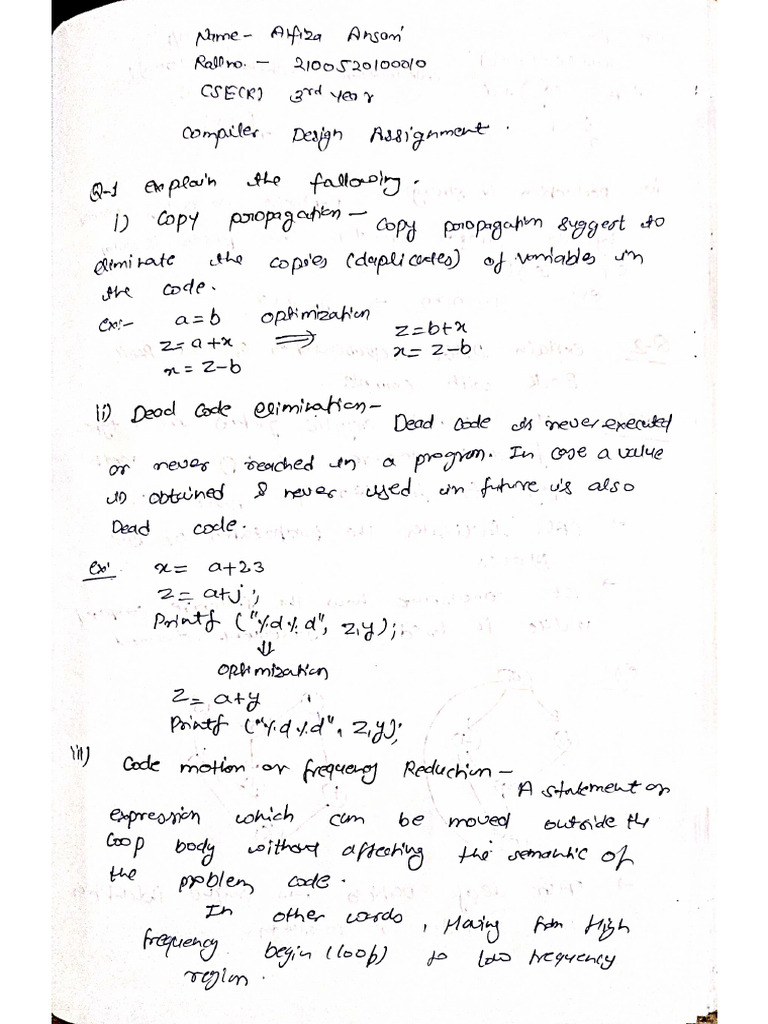 Name - Afiza Ansari
Rallno. - 2100520100010
CSE(R) 3rd year
Compiler Design Assignment.
Q-1 explain the following.
i) Copy propagation - Copy propagation suggest to
eliminate the copies (duplicates) of variables in
the code.
ex:- a=b optimization z=b+x
z=a+x. ⟹ x= z-b.
x= z-b
ii) Dead Code elimination - Dead code is never executed
or never reached in a program. In case a value
is obtained & never used in future is also
Dead code.
ex: x= a+23
z= a+j;
Printf ("%d%d", z,y);
⇓
optimization
z= a+y
Printf ("%d%d", z,y);
iii) Code motion or frequency Reduction -
A statement or
expression which can be moved outside the
loop body without affecting the semantic of
the problem code.
In other words, Moving from High
frequency begin (loop) to low frequency
region.